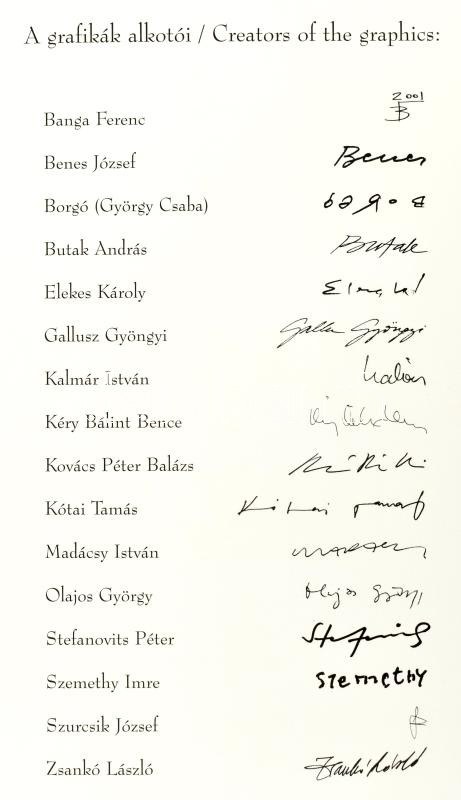 A grafikák alkotói / Creators of the graphics:
Banga Ferenc 2001 B
Benes József Benes
Borgó (György Csaba)
Butak András Butak
Elekes Károly
Gallusz Gyöngyi Gallusz Gyöngyi
Kalmár István
Kéry Bálint Bence
Kovács Péter Balázs
Kótai Tamás Kótai Tamás
Madácsy István
Olajos György Olajos György
Stefanovits Péter
Szemethy Imre Szemethy
Szurcsik József
Zsankó László